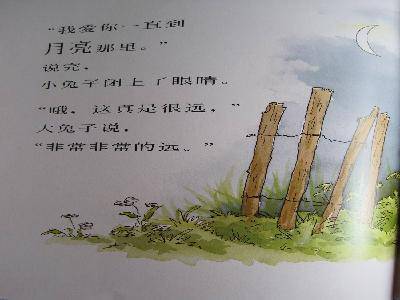 “我爱你一直到
月亮那里。”
说完，
小兔子闭上了眼睛。
“哦，这真是很远，”
大兔子说，
“非常非常的远。”